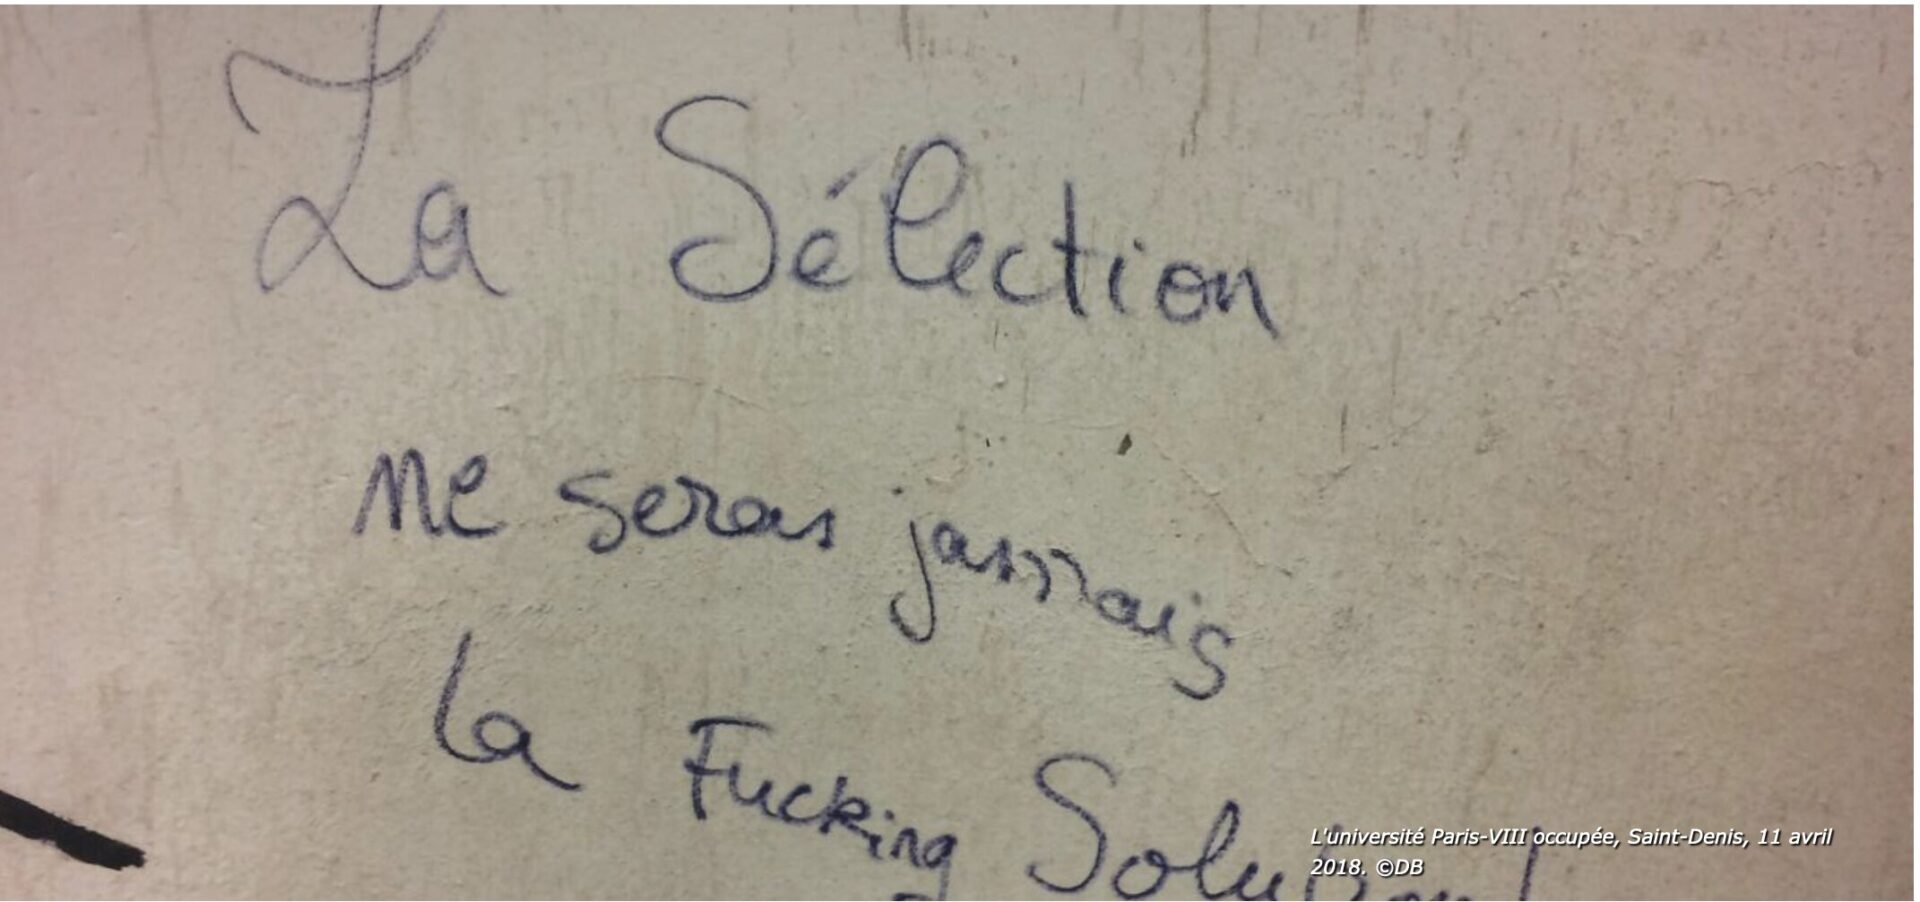 La Sélection
ne seras jamais
la Fucking Solution!
L'université Paris-VIII occupée, Saint-Denis, 11 avril
2018. ©DB